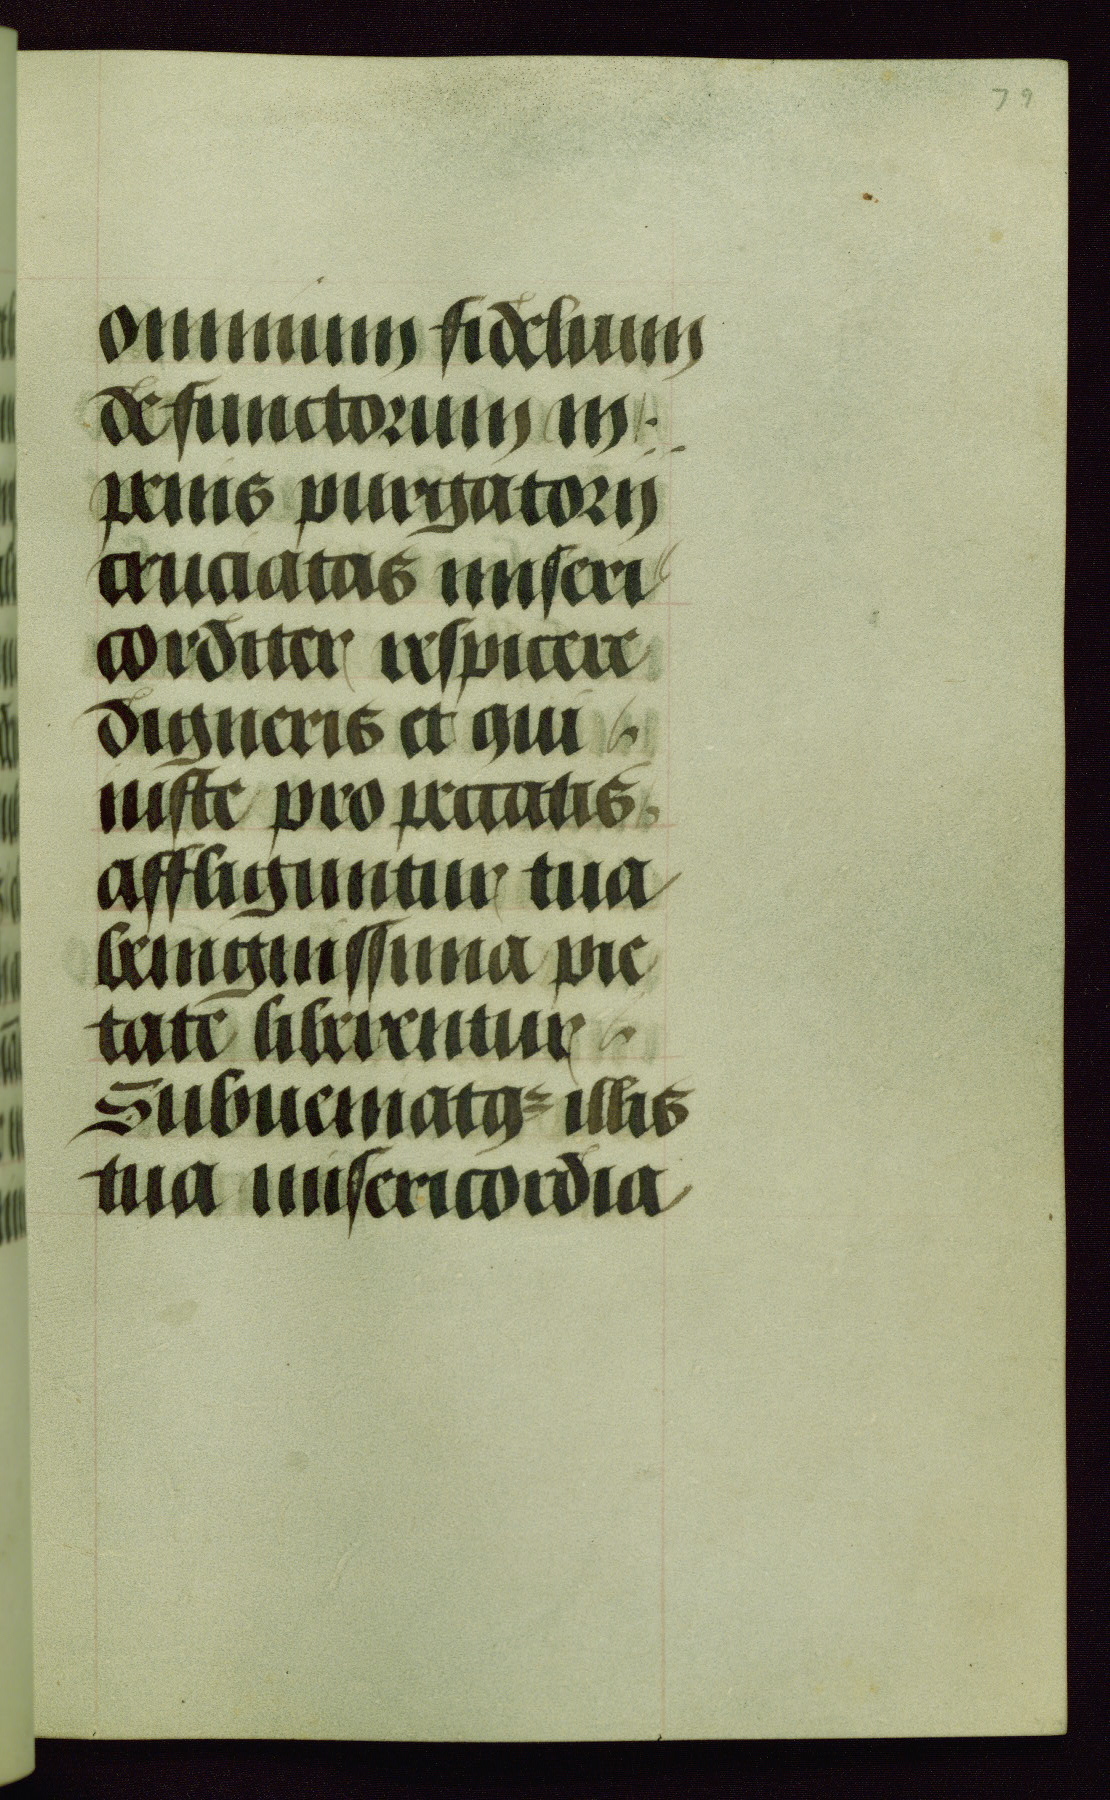 79
omnium fidelium
defunctorum in
penis purgatorij
cruciatas miseri
corditer respicere
digneris et qui
iuste pro peccatis
affliguntur tua
benignissima pie
tate liberentur
Subueniatq; illis
tua misericordia